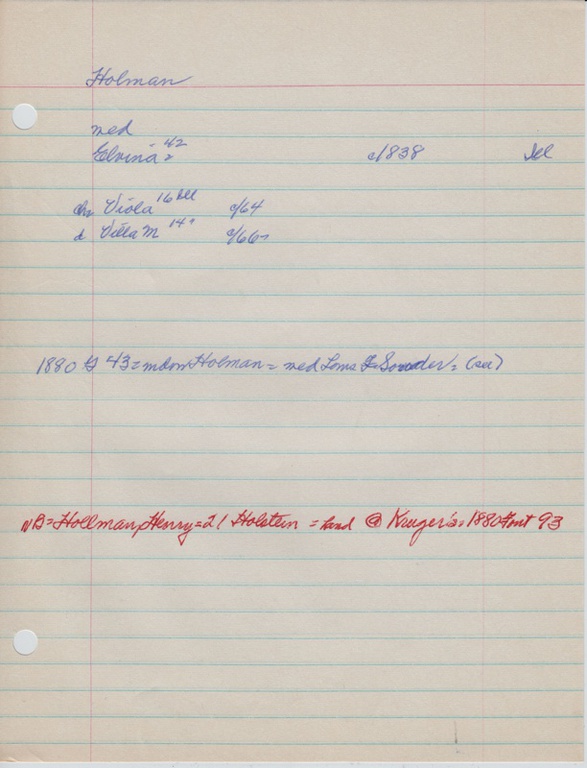 Holman
wed
Elvina 42 c/1838 Del
ch Viola 16 Ill c/64
d Villa M 14 " c/66
1880 G 43 = Holman = wed Louis Souder = (see)
NB = Hollman, Henry = 21 Holstein = hand @ Kruger's = 1880 Font 93